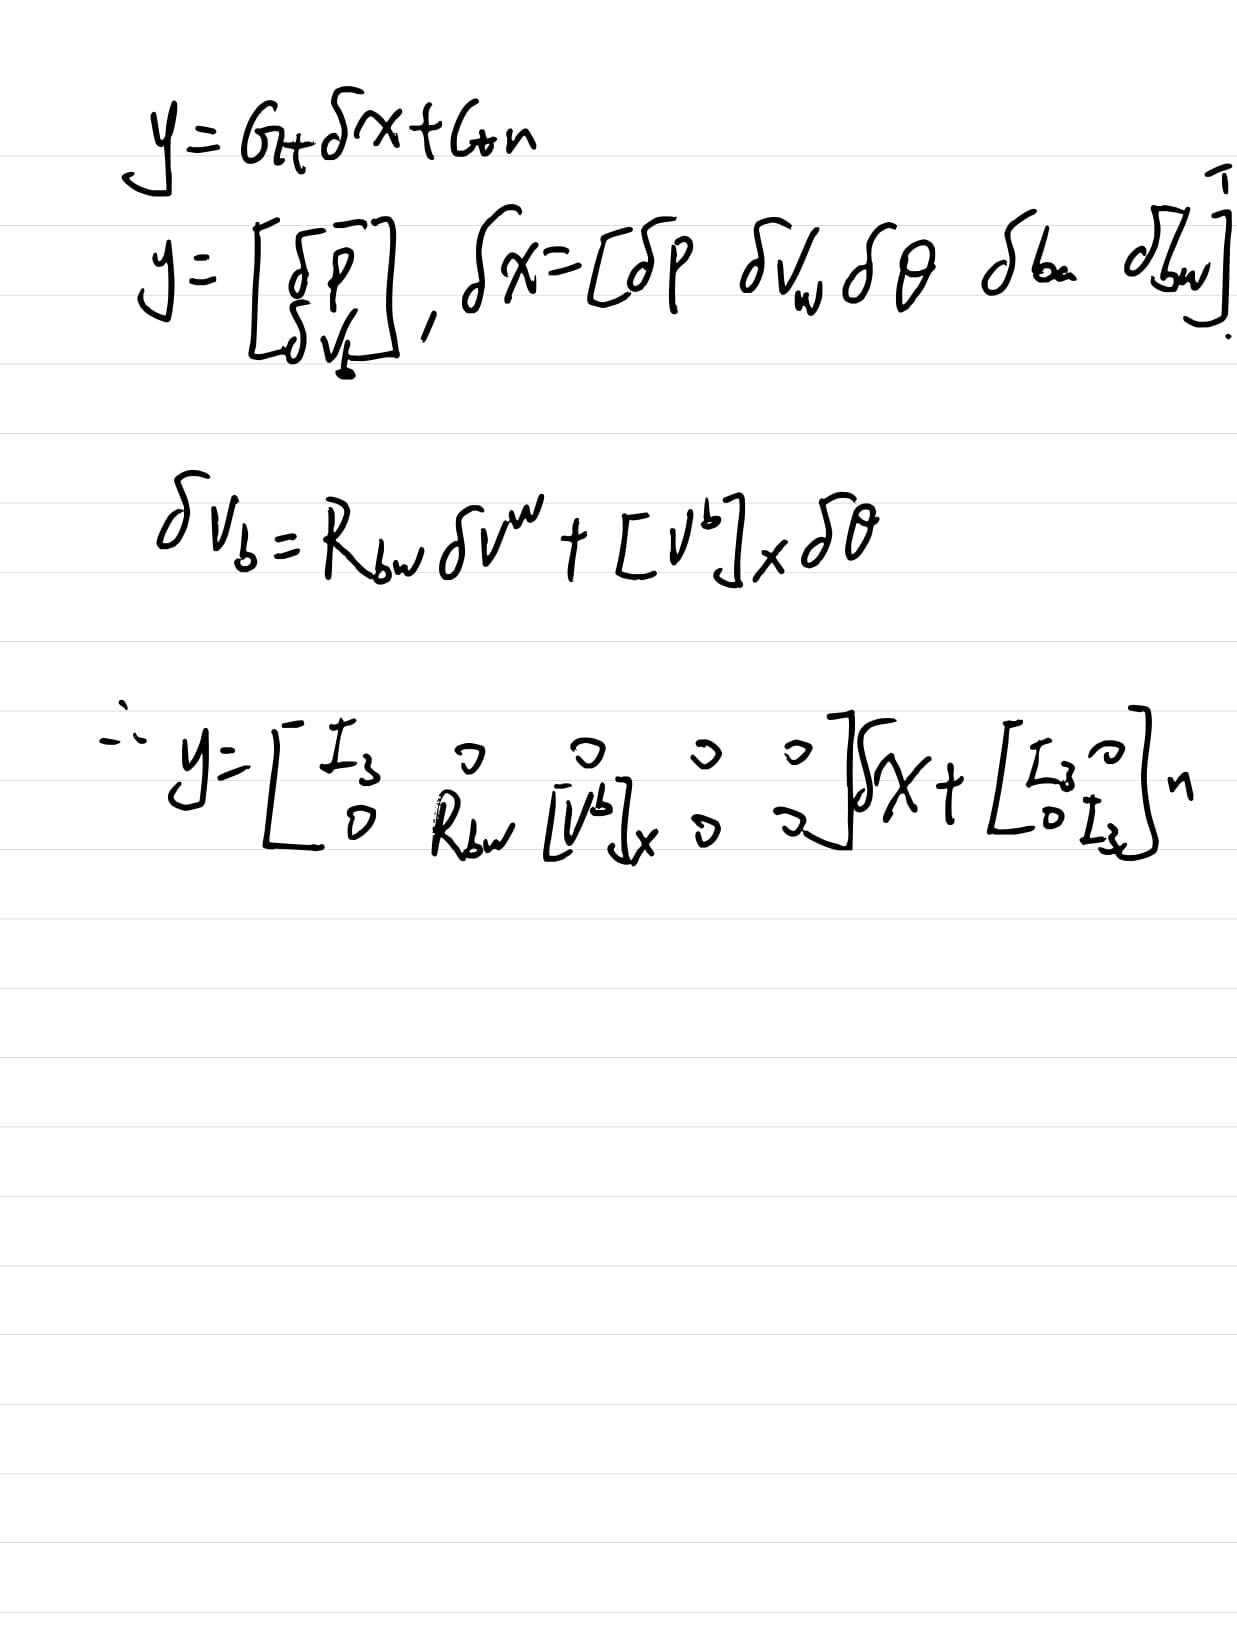 y = G_t δx + C_t n
y = [δp; δV_b], δx = [δp δV_w δθ δb_a δb_w]^T.
δV_b = R_bw δV^w + [V^b]_× δθ
∴ y = [I_3 0 0 0 0; 0 R_bw [V^b]_× 0 0] δx + [I_3 0; 0 I_3] n